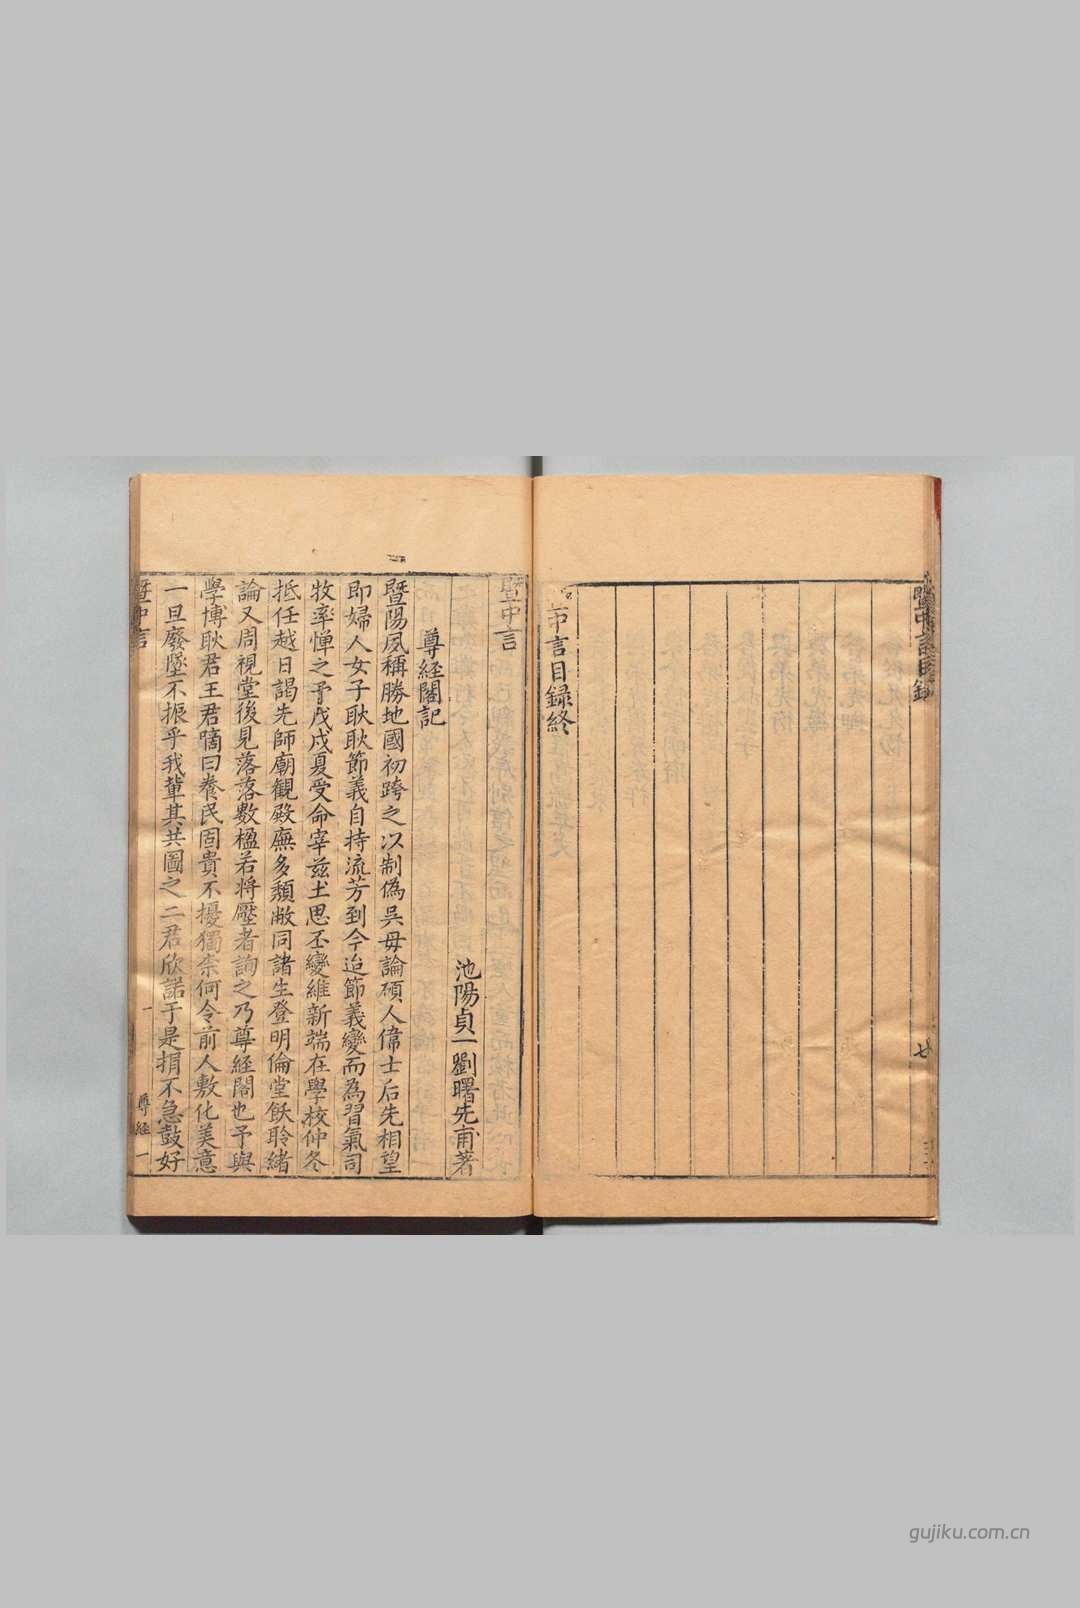 中言目錄終
七
暨中言
池陽貞一劉曙先甫著
尊經閣記
暨陽夙稱勝地國初跨之以制偽吳毋論碩人偉士后先相望
即婦人女子耿耿節義自持流芳到今迨節義變而為習氣司
牧率憚之予戊戌夏受命宰茲土思丕變維新端在學校仲冬
抵任越日謁先師廟觀殿廡多頹敝同諸生登明倫堂飫聆緒
論又周視堂後見落落數楹若將壓者詢之乃尊經閣也予與
學博耿君王君謫曰養民固貴不擾獨柰何令前人敷化美意
一旦廢墜不振乎我輩其共圖之二君欣諾于是捐不急鼓好
暨中言
一
尊經一
gujiku.com.cn